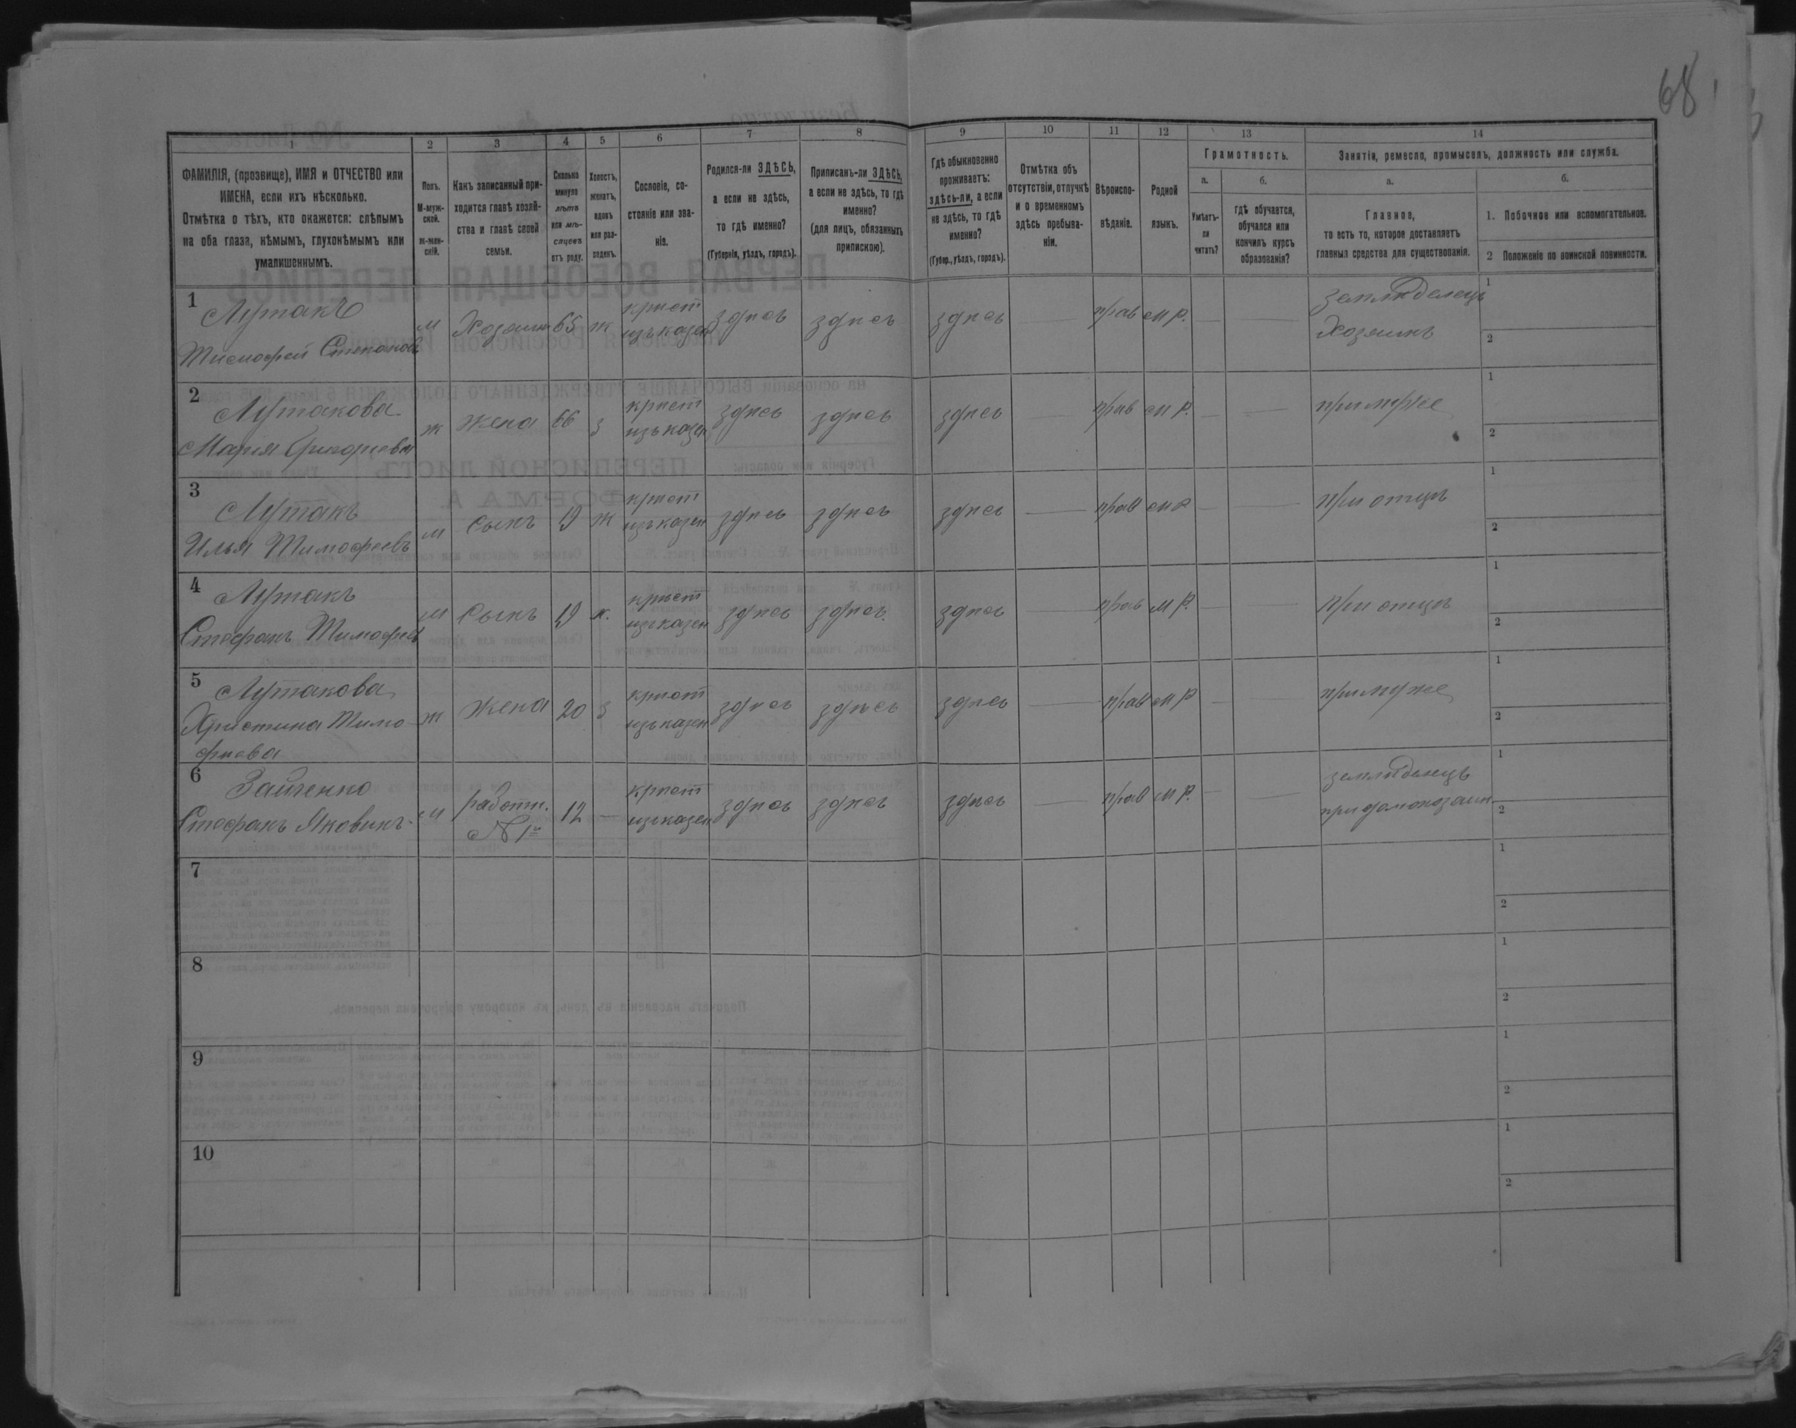 68
1 2 3 4 5 6 7 8 9 10 11 12 13 14
ФАМИЛІЯ, (прозвище), ИМЯ и ОТЧЕСТВО или
ИМЕНА, если ихъ нѣсколько.
Отмѣтка о тѣхъ, кто окажется: слѣпымъ
на оба глаза, нѣмымъ, глухонѣмымъ или
умалишеннымъ.
Полъ.
М-муж-
ской.
ж-жен-
скій.
Какъ записанный при-
ходится главѣ хозяй-
ства и главѣ своей
семьи.
Сколько
минуло
лѣтъ
или мѣ-
сяцевъ
отъ роду.
Холостъ,
женатъ,
вдовъ
или раз-
веденъ.
Сословіе, со-
стояніе или зва-
ніе.
Родился-ли ЗДѢСЬ,
а если не здѣсь,
то гдѣ именно?
(Губернія, уѣздъ, городъ).
Приписанъ-ли ЗДѢСЬ,
а если не здѣсь, то гдѣ
именно?
(для лицъ, обязанныхъ
припискою).
Гдѣ обыкновенно
проживаетъ:
здѣсь-ли, а если
не здѣсь, то гдѣ
именно?
(Губер., уѣздъ, городъ).
Отмѣтка объ
отсутствіи, отлучкѣ
и о временномъ
здѣсь пребыва-
ніи.
Вѣроиспо-
вѣданіе.
Родной
языкъ.
Грамотность.
а.
Умѣетъ-
ли
читать?
б.
гдѣ обучается,
обучался или
кончилъ курсъ
образованія?
Занятіе, ремесло, промыселъ, должность или служба.
а.
Главное,
то есть то, которое доставляетъ
главныя средства для существованія.
б.
1. Побочное или вспомогательное.
2 Положеніе по воинской повинности.
1 Лутакъ м Хозяинъ 65 ж крест здѣсь здѣсь здѣсь — прав м р. — — земледелецъ 1
Тимофей изъ казен хозяинъ 2
2 Лутакова ж жена 66 з крест здѣсь здѣсь здѣсь — прав м р. — — при муже 1
Мария Григориева изъ казен 2
3 Лутакъ м сынъ 19 ж крест здѣсь здѣсь здѣсь — прав м р — — при отцѣ 1
Илья Тимофеевъ изъ казен 2
4 Лутакъ м сынъ 19 крест здѣсь здѣсь здѣсь — прав м р. — — при отцѣ 1
Стефанъ изъ казен 2
5 Лутакова ж жена 20 з крест здѣсь здѣсь здѣсь — прав м р. — — при муже 1
Христина Тимо- изъ казен 2
фиева
6 м работн. 12 — крест здѣсь здѣсь здѣсь — прав м р. — — земледелецъ 1
Стефанъ N 1й изъ казен 2
7 1
2
8 1
2
9 1
2
10 1
2